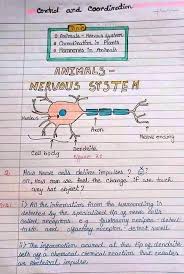 Control and Coordination
Animals - Nervous System
Coordination in Plants
Hormones in Animals
ANIMALS -
NERVOUS SYSTEM
Nucleus
Axon
Nerve Ending
Cell body
Dendrite
How Nerve cells deliver impulses ?
OR, How can we feel the change if we touch
very hot object?
i) All the information from the surrounding is
detected by the specialised tip of nerve cells
called receptors e.g. gustatory receptor - detect
taste and olfactory receptor - detect smell
ii) The information acquired at the tip of dendrite
sets off a chemical reaction that creates
an electrical impulse.